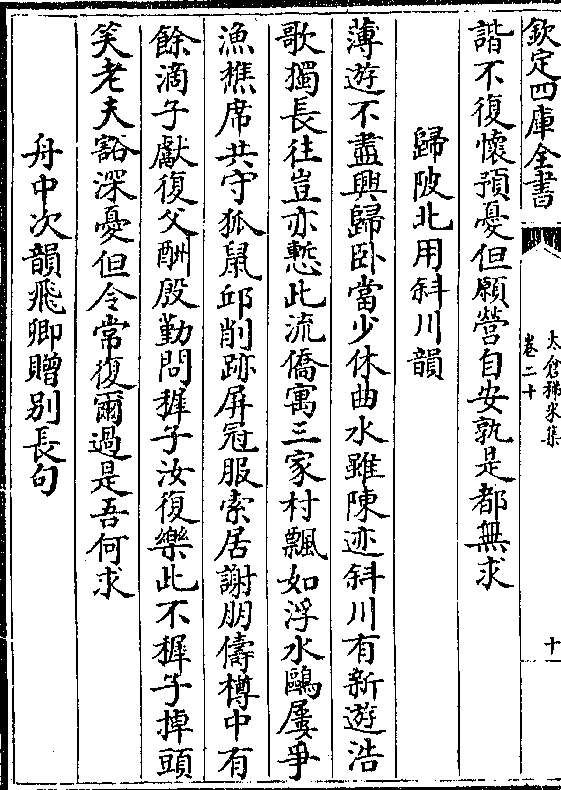 欽定四庫全書
太倉稊米集
卷二十
十
諧不復懷預憂但願營自安孰是都無求
歸陂北用斜川韻
薄遊不盡興歸卧當少休曲水雖陳迹斜川有新遊浩
歌獨長往豈亦慙此流僑寓三家村飄如浮水鷗屢爭
漁樵席共守狐鼠邱削跡屏冠服索居謝朋儔樽中有
餘滴子獻復父酬殷勤問穉子汝復樂此不穉子掉頭
笑老夫豁深憂但令常復爾過是吾何求
舟中次韻飛卿贈别長句